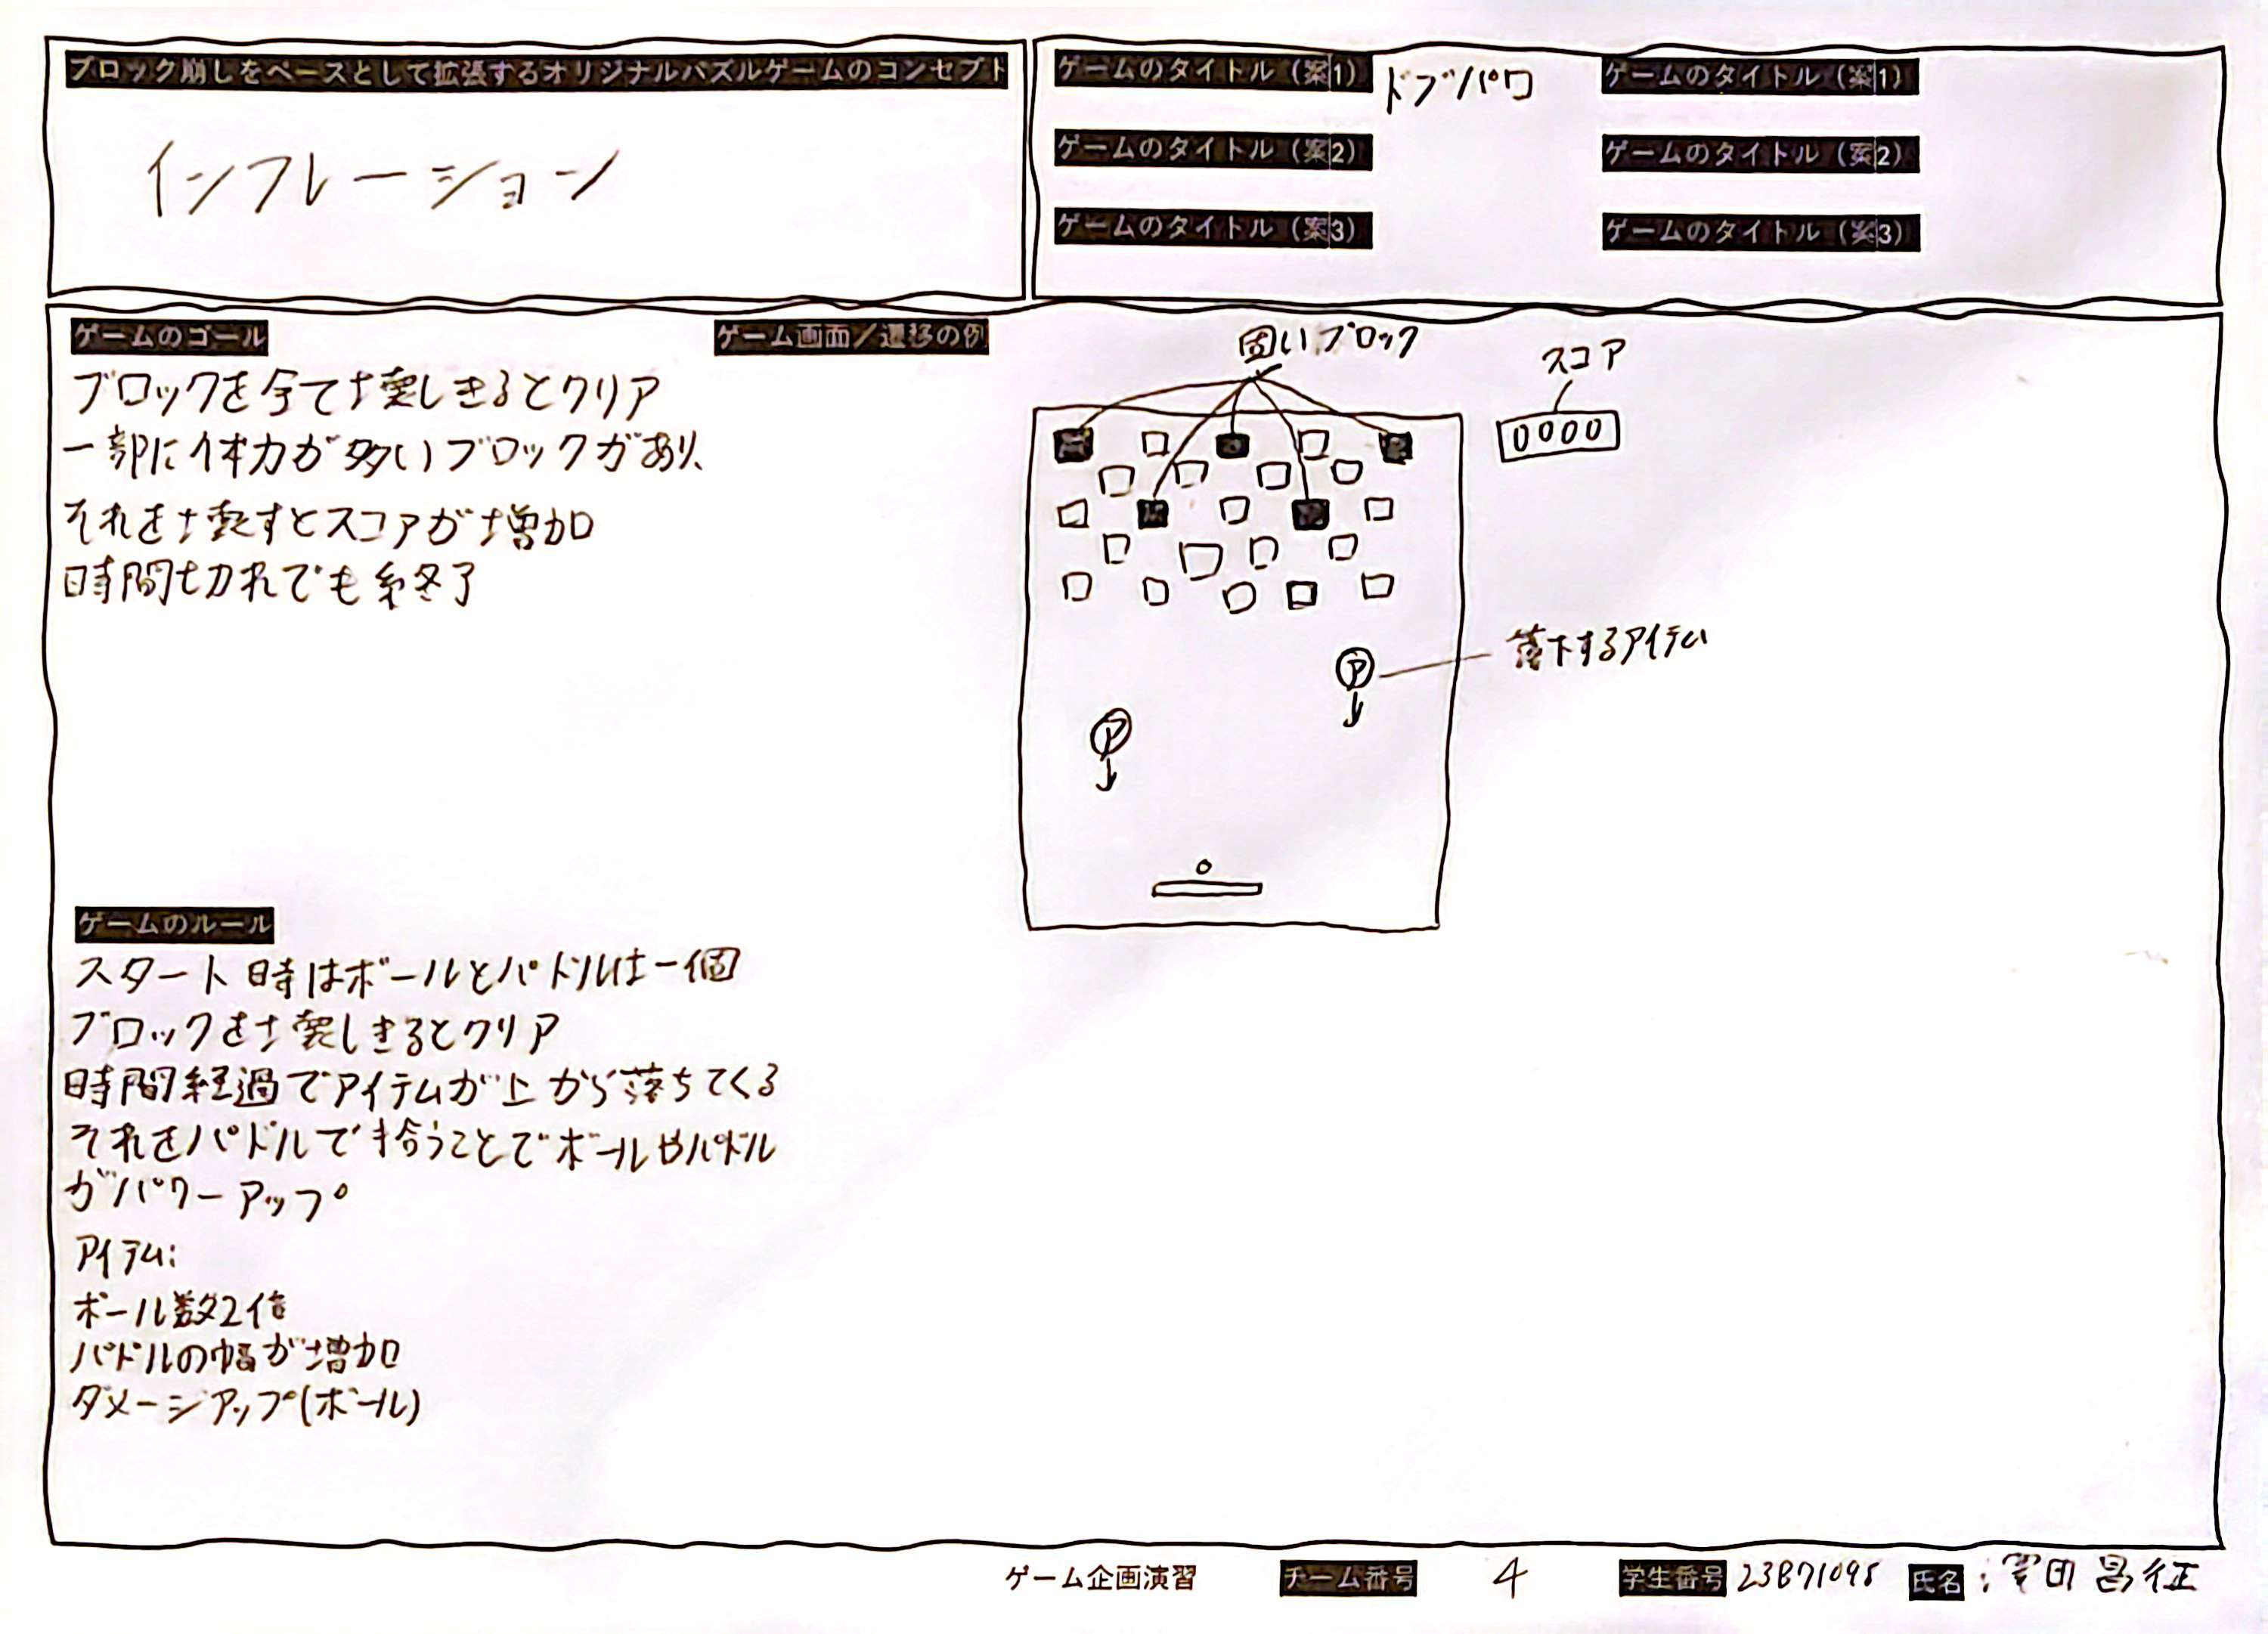 ブロック崩しをベースとして拡張するオリジナルパズルゲームのコンセプト
インフレーション
ゲームのタイトル（案1） ドブパワ
ゲームのタイトル（案2）
ゲームのタイトル（案3）
ゲームのタイトル（案1）
ゲームのタイトル（案2）
ゲームのタイトル（案3）
ゲームのゴール
ブロックを全て壊しきるとクリア
一部に体力が多いブロックがあり、
それを壊すとスコアが増加
時間切れでも終了
ゲーム画面／遷移の例
固いブロック
スコア
0000
ア
落下するアイテム
ア
ゲームのルール
スタート時はボールとパドルは一個
ブロックを壊しきるとクリア
時間経過でアイテムが上から落ちてくる
それをパドルで拾うことでボールやパドル
がパワーアップ
アイテム:
ボール数2倍
パドルの幅が増加
ダメージアップ(ボール)
ゲーム企画演習
チーム番号 4
学生番号 23B71098
氏名